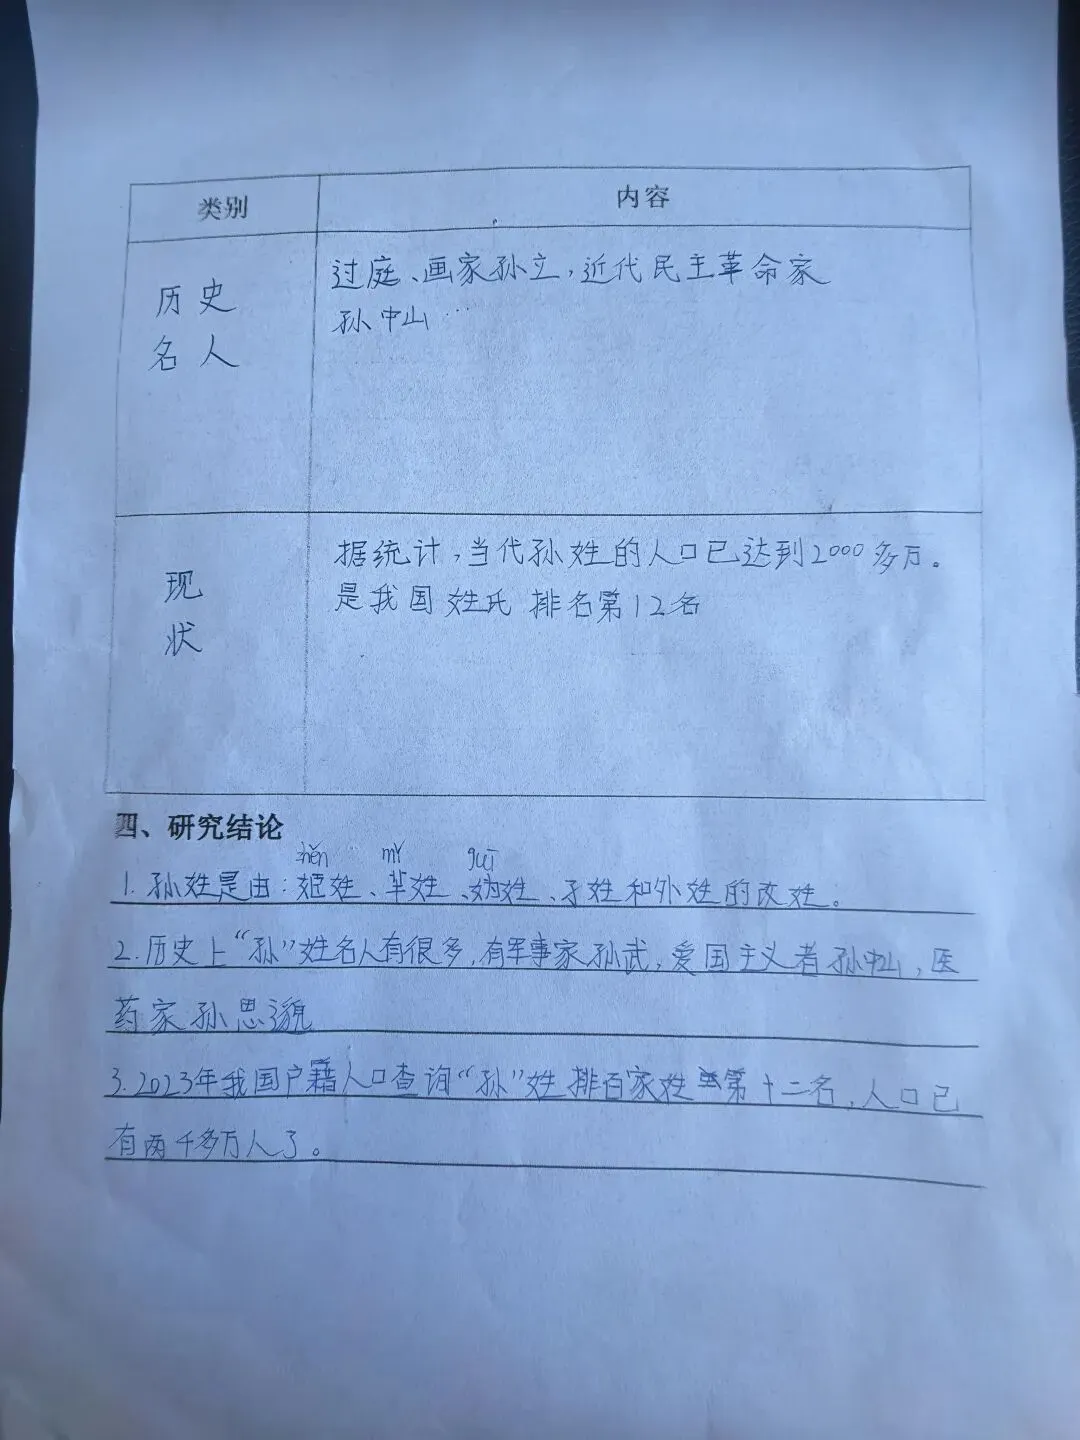 类别
内容
历史
名人
过庭、画家孙立,近代民主革命家
孙中山…
现
状
据统计,当代孙姓的人口已达到2000多万。
是我国姓氏排名第12名
四、研究结论
zhěn mǐ guī
1.孙姓是由:姫姓、芈姓、妫姓、子姓和外姓的改姓。
2.历史上“孙”姓名人有很多,有军事家孙武,爱国主义者孙中山,医
药家孙思邈
3.2023年我国户籍人口查询“孙”姓排百家姓第十二名,人口已
有两千多万人了。